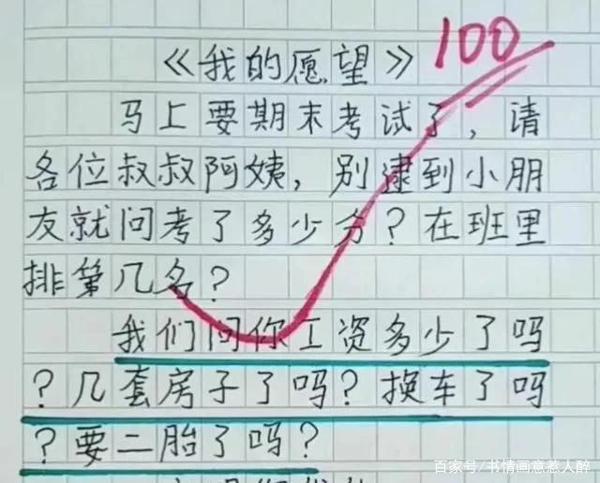 《我的愿望》
100
马上要期末考试了，请
各位叔叔阿姨，别逮到小朋
友就问考了多少分？在班里
排第几名？
我们问你工资多少了吗
？几套房子了吗？换车了吗
？要二胎了吗？
百家号/书情画意惹人醉